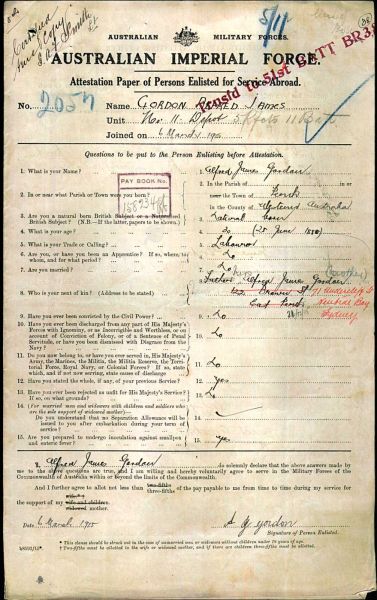 Certified
true copy
AUSTRALIAN MILITARY FORCES.
AUSTRALIAN IMPERIAL FORCE.
Transfd to 51st BATT
Attestation Paper of Persons Enlisted for Service Abroad.
No. 2057 Name GORDON ALFRED JAMES
Unit No 11 Depot
Joined on 6 March 1915
Questions to be put to the Person Enlisting before Attestation.
1. What is your Name? 1. Alfred James Gordon
2. In or near what Parish or Town were you born? 2. In the Parish of
near the Town of Perth
in the County of Western Australia
PAY BOOK No.
3. Are you a natural born British Subject or a Naturalised British Subject? (N.B.—If the latter, papers to be shown) 3. Natural born
4. What is your age? 4.
5. What is your Trade or Calling? 5. Labourer
6. Are you, or have you been an Apprentice? If so, where, to whom, and for what period? 6. No
7. Are you married? 7.
8. Who is your next of kin? (Address to be stated) 8. Father Alfred James Gordon
East Perth
(mother)
Neutral Bay
Sydney
9. Have you ever been convicted by the Civil Power? 9. No
10. Have you ever been discharged from any part of His Majesty's Forces with Ignominy, or as Incorrigible and Worthless, or on account of Conviction of Felony, or of a Sentence of Penal Servitude, or have you been dismissed with Disgrace from the Navy? 10. No
11. Do you now belong to, or have you ever served in, His Majesty's Army, the Marines, the Militia, the Militia Reserve, the Territorial Force, Royal Navy, or Colonial Forces? If so, state which, and if not now serving, state cause of discharge 11. No
12. Have you stated the whole, if any, of your previous Service? 12. Yes
13. Have you ever been rejected as unfit for His Majesty's Service? If so, on what grounds? 13. No
14. (For married men and widowers with children and soldiers who are the sole support of widowed mother)
Do you understand that no Separation Allowance will be issued to you after embarkation during your term of service? 14.
15. Are you prepared to undergo inoculation against smallpox and enteric fever? 15. yes
I, Alfred James Gordon do solemnly declare that the above answers made by me to the above questions are true, and I am willing and hereby voluntarily agree to serve in the Military Forces of the Commonwealth of Australia within or beyond the limits of the Commonwealth.
And I further agree to allot not less than two-fifths three-fifths of the pay payable to me from time to time during my service for the support of my wife and children. widowed mother.
Date 6 March 1915
A J Gordon
Signature of Person Enlisted.